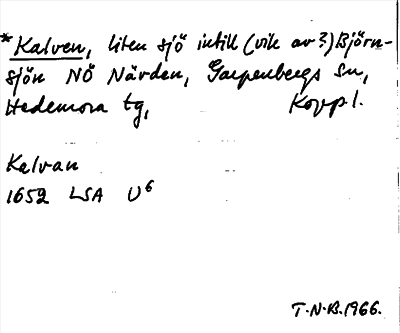 *Kalven, liten sjö intill (vik av?) Björn-
sjön NÖ Nävden, Garpenbergs sn,
Hedemora tg, Kopp l.
Kalvan
1652 LSA U6
T.N.B.1966.